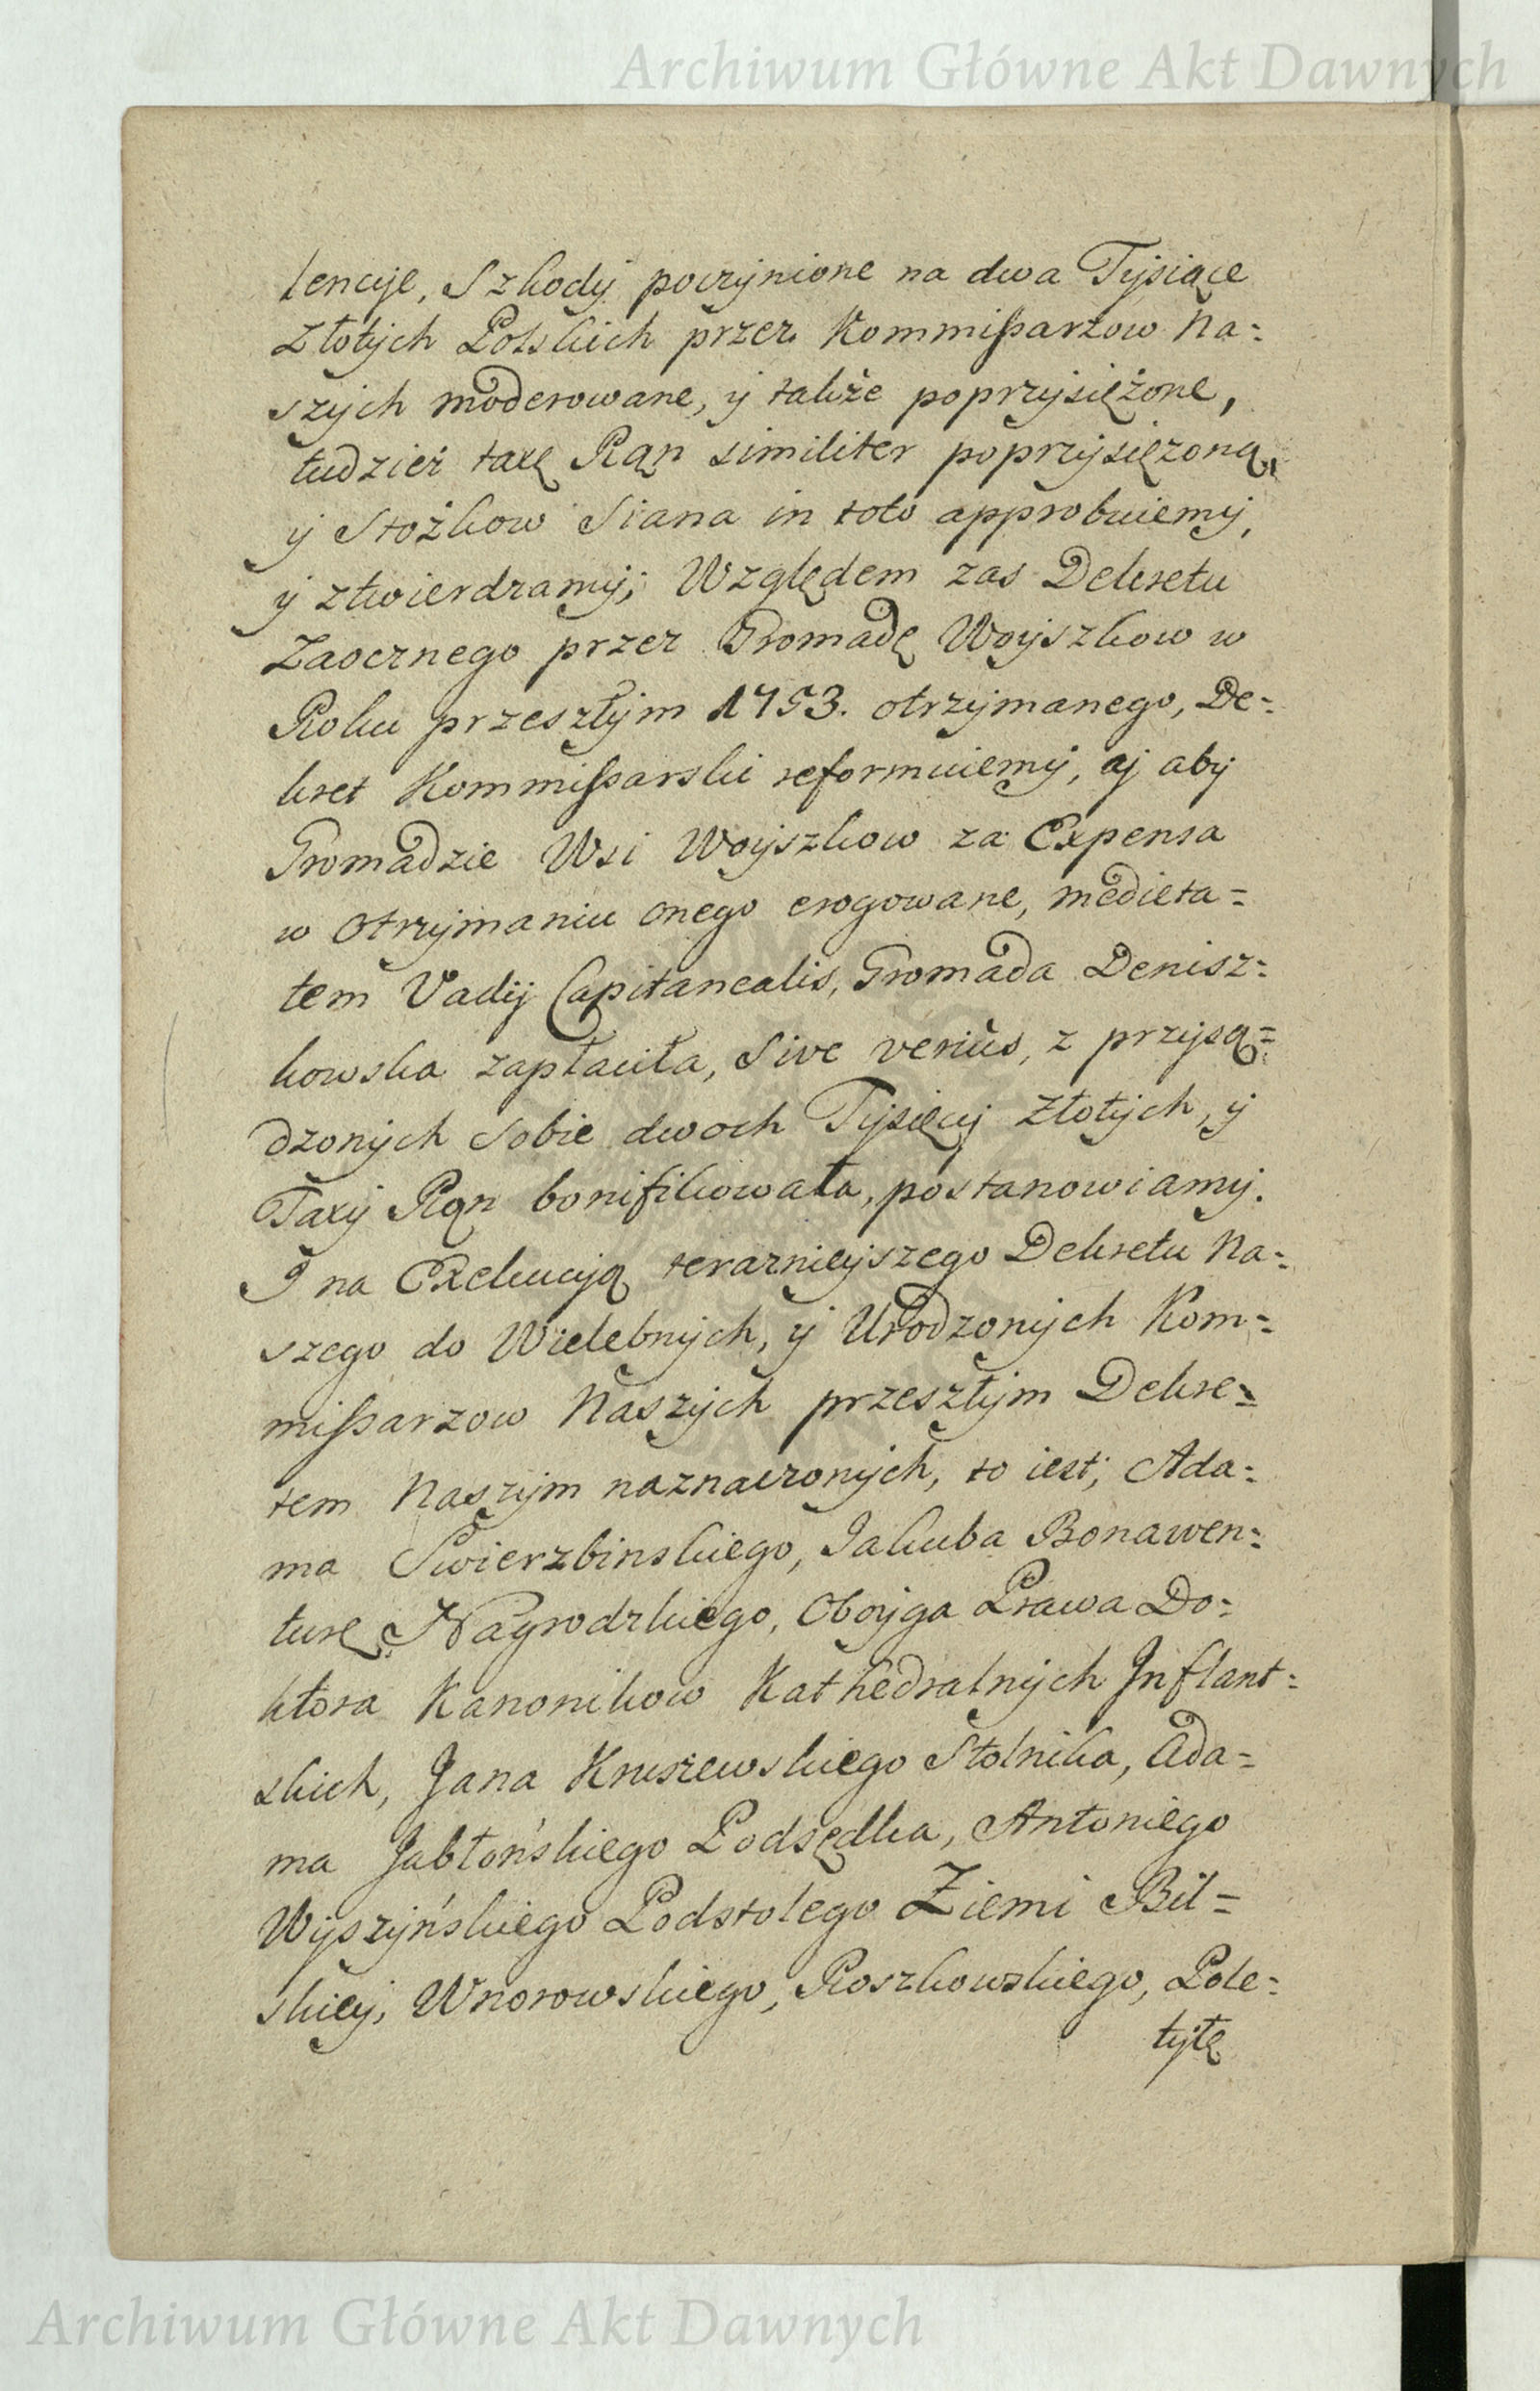 Archiwum Główne Akt Dawnych
lencyie, Szkody poczynione na dwa Tysiące
Złotych Polskich przez Kommißarzow Na=
szych moderowane, y także poprzysiężone,
tudzież taxę Ran similiter poprzysiężoną,
y Stożkow Siana in toto approbuiemy,
y ztwierdzamy; Względem zas Dekretu
Zaocznego przez Gromadę Woyszkow w
Roku przeszłym 1753. otrzymanego, De=
kret Kommißarski reformuiemy, aj aby
Gromadzie Wsi Woyszkow za Expensa
w otrzymaniu onego erogowane, medieta=
tem Vadij Capitanealis, Gromada Denisz=
kowska zapłaciła, Sive verius, z przysą=
dzonych Sobie dwoch Tysięcy Złotych, y
Taxy Ran bonifikowała, postanowiamy.
I na Exekucyią teraznieyszego Dekretu Na=
szego do Wielebnych, y Urodzonych Kom=
mißarzow Naszych przeszłym Dekre=
tem Naszym naznaczonych, to iest; Ada=
ma Swierzbinskiego, Jakuba Bonawen=
turę Nagrodzkiego, Oboyga Prawa Do=
ktora Kanonikow Kathedralnych Inflant=
skich, Jana Kruszewskiego Stolnika, Ada=
ma Jabłońskiego Podsędka, Antoniego
Wyszyńskiego Podstolego Ziemi Bil=
skiey, Wnorowskiego, Roszkowskiego, Pole=
tyłę
Archiwum Główne Akt Dawnych